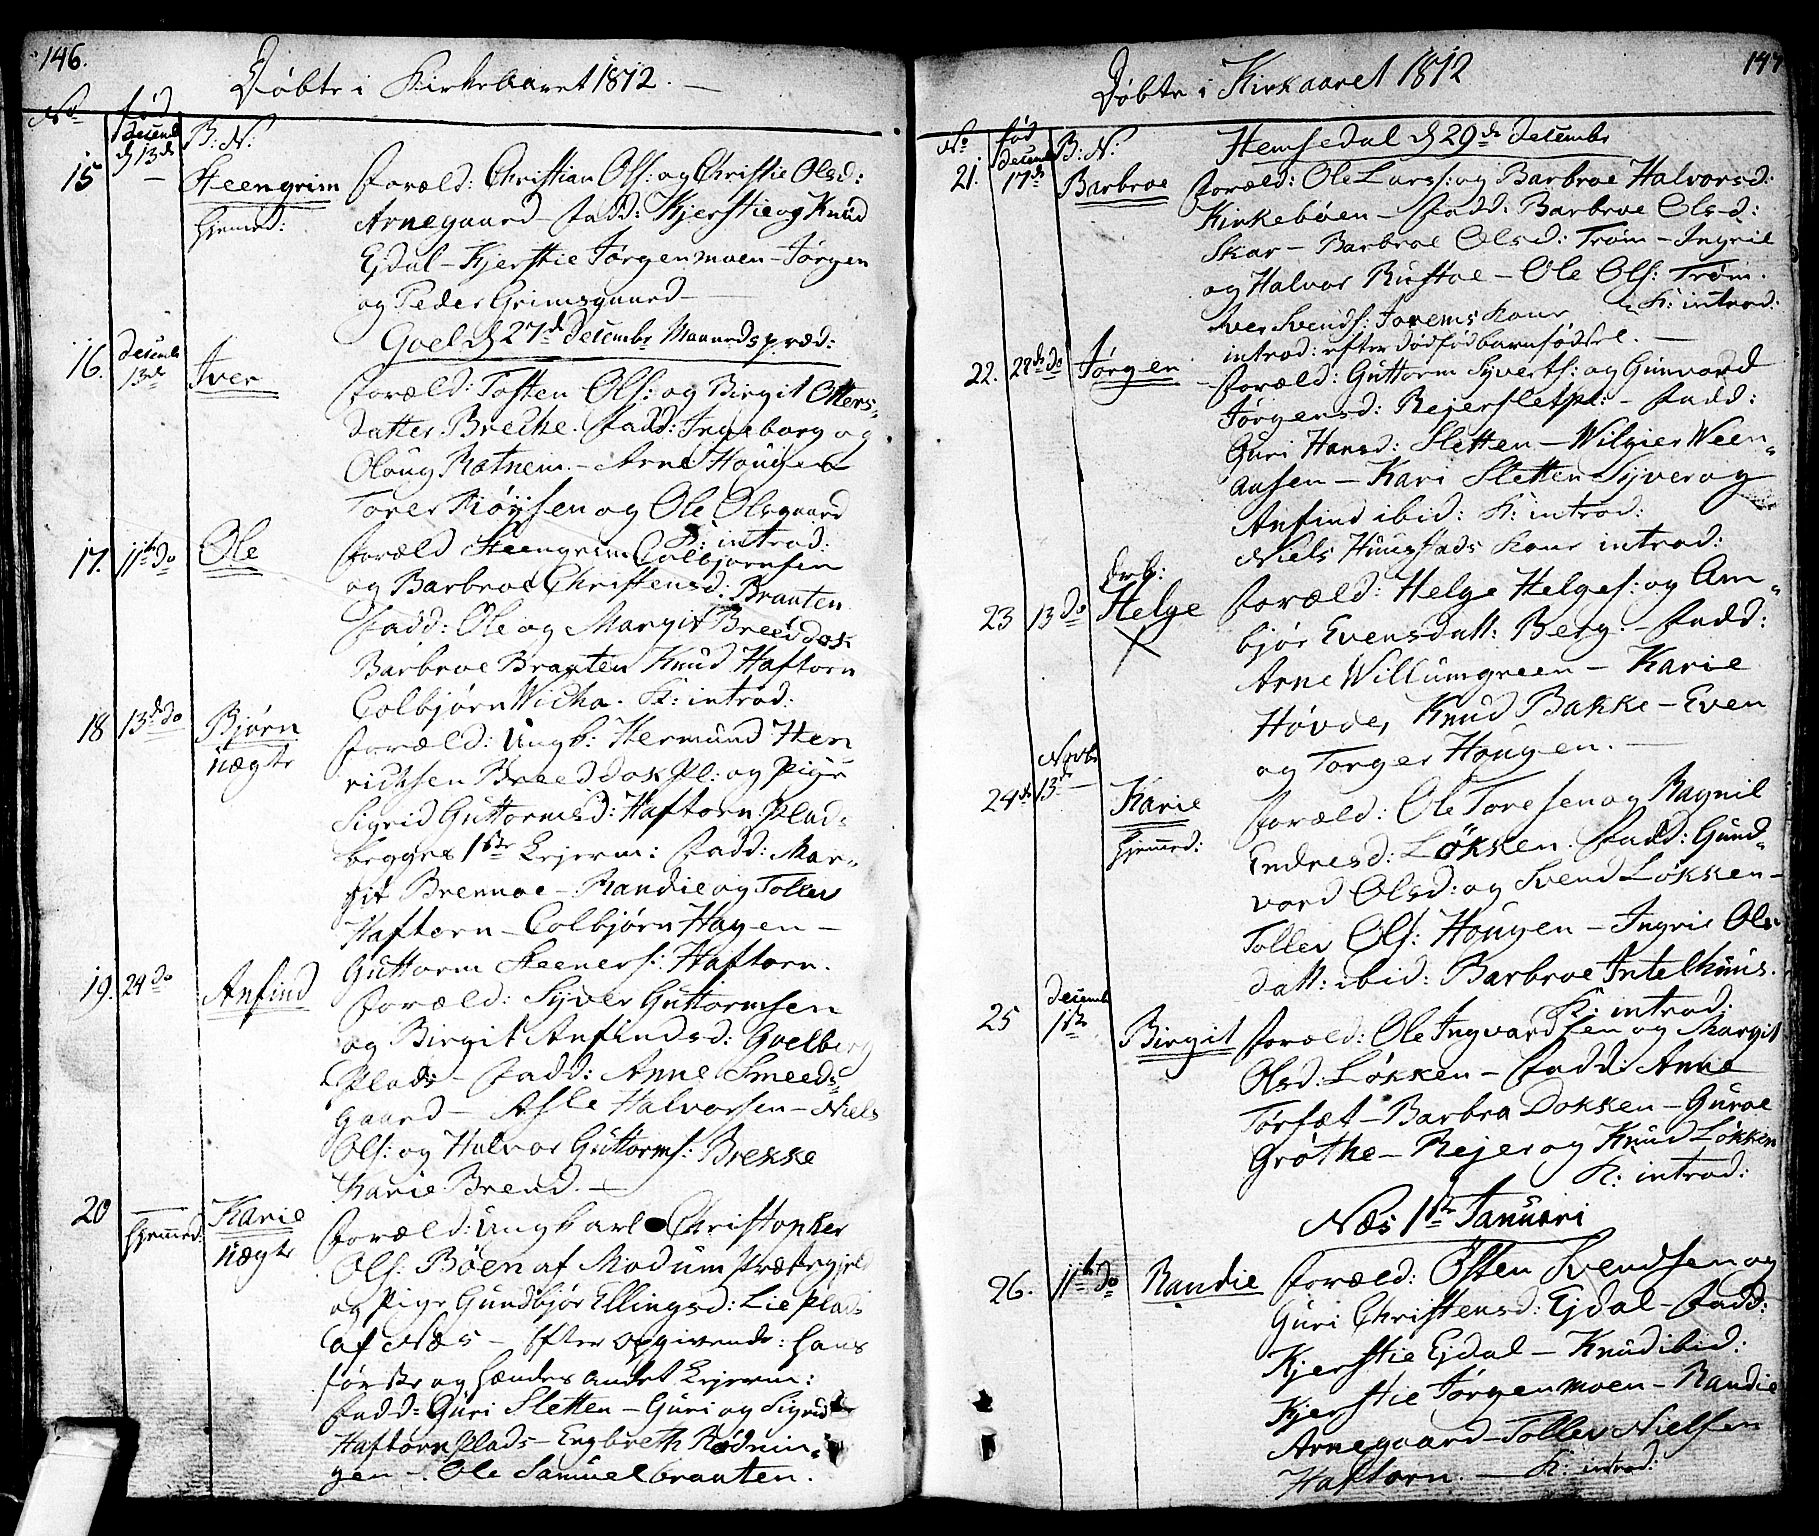 146.
Döbte i Kirkeaaret 1812. —
No
fød
B: N:
15
Decemb
d 13de
Steengrim
hjemed:
Foræld: Christian Ols: og Christie Olsd:
Arnegaard – Fadd: Kjerstie og Knud
Ejdal – Kjerstie Jørgenmoen – Jørgen
og Peder Grimsgaard –
Goel d 27de Decembr Maanedspræd:
16.
Decemb
13de
Iver
Foræld: Tosten Ols: og Birgit Otters-
datter Brecke. Fadd: Ingeborg og
Oloug Rotneim. – Arne Hougen
Torer Röysen og Ole Olsgaard
K: introd:
17.
11te do
Ole
Foræld Steengrim Colbjørnsen
og Barbroe Christensd: Brauten
Fadd: Ole og Margit Breeddok
Barbroe Brauten Knud Haftorn
Colbjørn Wicha. K: introd:
18
13de do
Bjørn
uægte
Foræld: Ungk: Hermund Hen
richsen Breeddok Pl: og Pige
Sigrid Guttormsd: Haftorn Plads
begges 1ste Lejerm: Fadd: Mar-
git Brennoe – Randie og Tollev
Haftorn – Colbjørn Hagen –
Guttorm Steeners: Haftorn.
19.
24 do
Anfind
Foræld: Syver Guttormsen
og Birgit Anfindsd: Goelberg
Plads – Fadd: Anne Smeeds-
gaard – Asle Halvorsen – Niels
Ols: og Halvor Guttorms: Brekke
Karie Brend. –
20
hjemed:
Karie
uægte
Foræld: Ungkarl Christopher
Ols: Böen af Modum Præstegjeld
og Pige Gundbjør Ellingsd: Lie Plads
af Næs – Efter opgivende: hans
første og hendes andet Lejerm:
Fadd: Guri Sletten – Guri og Sigrid
Haftorn Plads – Engbreth Rødnin-
gen – Ole Samuelbrauten.
147
Döbte i Kirkaaret 1812
No
fød
B: N:
Hemsedal d 29de Decembr
21.
Decemb
17de
Barbroe
Foræld: Ole Lars: og Barbroe Halvorsd:
Kirkeböen – Fadd: Barbroe Olsd:
Skar – Barbroe Olsd: Trøm – Ingril
og Halvor Rustoe – Ole Ols: Trøm.
K: introd:
Iver Svends: Torems Kone
introd: efter dødfød barnfødsel. –
22.
22de do
Jørgen
Foræld: Guttorm Syverts: og Gunvord
Jørgensd: Rejersletpl: – Fadd:
Guri Hansd: Sletten – Wilgier Ween-
ausen – Kari Sletten Syver og
Anfind ibid: K: introd:
Niels Huustads Kone introd:
23
13 do
Helge
Foræld: Helge Helges: og Am-
bjør Evensdatt: Berg: – Fadd:
Arne Willumgreen – Karie
Høvde, Knud Bakke – Even
og Torger Hougen. –
24de
Novbr
13de
Karie
hjemed:
Foræld: Ole Toresen og Ragnil
Endresd: Løkken. Fadd: Gund-
vord Olsd: og Svend Løkken –
Tollev Ols: Hougen – Ingrie Ols
datt: ibid: Barbroe Intelhuus.
K: introd:
25
Decemb
1te
Birgit
Foræld: Ole Ingvardsen og Margit
Olsd: Løkken – Fadd: Anne
Torfæt – Barbra Dokken – Guroe
Gröthe – Rejer og Knud Løkken
K: introd:
Næs 1te Januari
26.
11te do
Randie
Foræld: Østen Svendsen og
Guri Christensd: Ejdal – Fadd:
Kjerstie Ejdal – Knud ibid:
Kjerstie Jørgenmoen – Randie
Arnegaard – Tollev Nielsen
Haftorn. – K: introd: